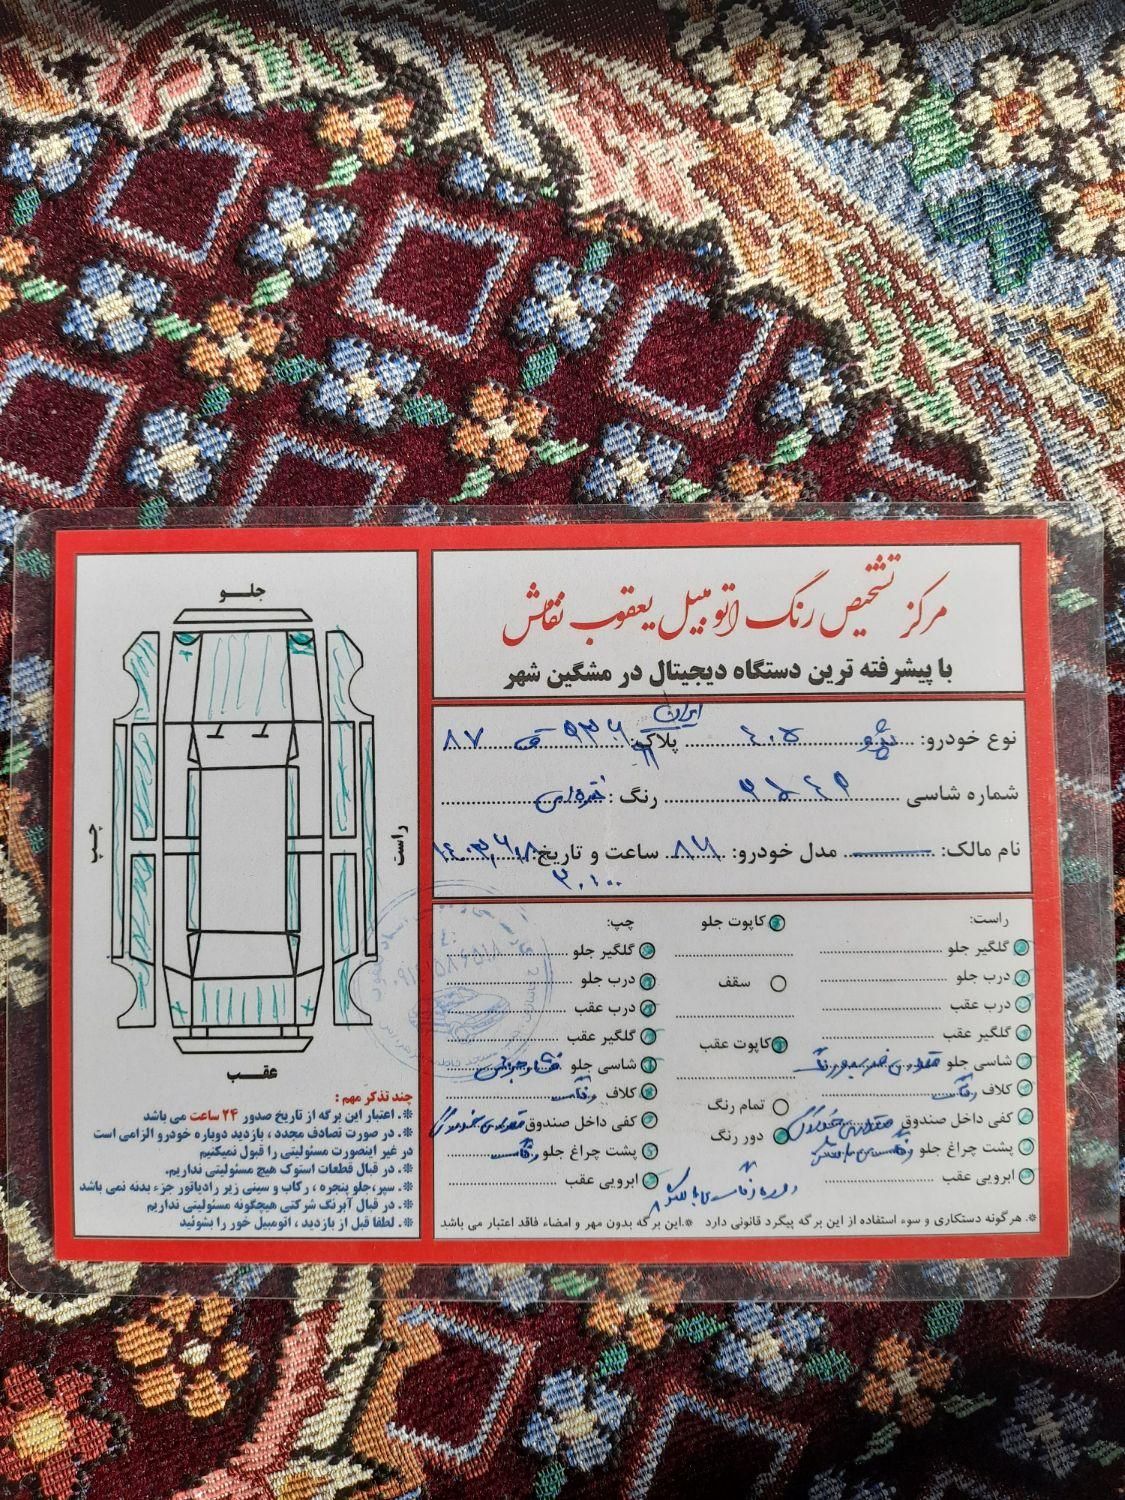 مرکز تشخیص رنگ اتومبیل یعقوب نقاش
با پیشرفته ترین دستگاه دیجیتال در مشگین شهر
نوع خودرو: پژو ۴۰۵ پلاک: ایران
شماره شاسی رنگ: نقره‌ای
نام مالک: مدل خودرو: ساعت و تاریخ:
راست:
گلگیر جلو
درب جلو
درب عقب
گلگیر عقب
شاسی جلو
کلاف رنگ
کفی داخل صندوق
پشت چراغ جلو
ابرویی عقب
کاپوت جلو
سقف
کاپوت عقب
تمام رنگ
دور رنگ
چپ:
گلگیر جلو
درب جلو
درب عقب
گلگیر عقب
شاسی جلو
کلاف رنگ
کفی داخل صندوق
پشت چراغ جلو رنگ
ابرویی عقب
※. هرگونه دستکاری و سوء استفاده از این برگه پیگرد قانونی دارد ※.این برگه بدون مهر و امضاء فاقد اعتبار می باشد
جلـــو
چپ
راست
عقـــب
چند تذکر مهم :
※. اعتبار این برگه از تاریخ صدور ۲۴ ساعت می باشد
※. در صورت تصادف مجدد ، بازدید دوباره خودرو الزامی است
در غیر اینصورت مسئولیتی را قبول نمیکنیم
※. در قبال قطعات استوک هیچ مسئولیتی نداریم.
※. سپر،جلو پنجره ، رکاب و سینی زیر رادیاتور جزء بدنه نمی باشد
※. در قبال آبرنگ شرکتی هیچگونه مسئولیتی نداریم
※. لطفا قبل از بازدید ، اتومبیل خور را بشوئید